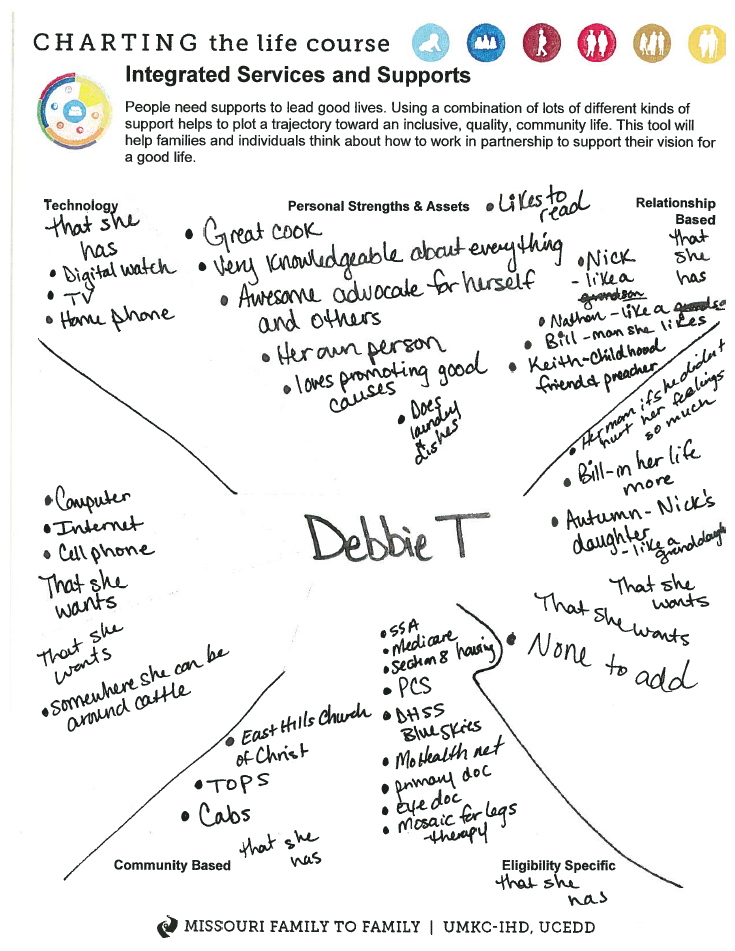 CHARTING the life course
Integrated Services and Supports
People need supports to lead good lives. Using a combination of lots of different kinds of
support helps to plot a trajectory toward an inclusive, quality, community life. This tool will
help families and individuals think about how to work in partnership to support their vision for
a good life.
Technology
that she
has
• Digital watch
• TV
• Home phone
Personal Strengths & Assets
• Likes to
read
• Great cook
• Very knowledgeable about everything
• Awesome advocate for herself
and others
• Her own person
• loves promoting good
causes
• Does
laundry
dishes
Relationship
Based
that
she
has
• Nick
- like a
grandson
• Nathan - like a
• Bill - man she likes
• Keith - childhood
friend & preacher
• Her mom if she didn't
hurt her feelings
so much
• Bill - in her life
more
• Autumn - Nick's
daughter
- like a
granddaugh
That she
wants
• Computer
• Internet
• Cell phone
That she
wants
That she
wants
• somewhere she can be
around cattle
Debbie T
That she wants
• None to add
• SSA
• Medicare
• Section 8 housing
• PCS
• DHSS
Blue Skies
• MoHealth net
• primary doc
• eye doc
• Mosaic for legs
therapy
• East Hills Church
of Christ
• TOPS
• Cabs
that she
has
Community Based
Eligibility Specific
that she
has
MISSOURI FAMILY TO FAMILY | UMKC-IHD, UCEDD